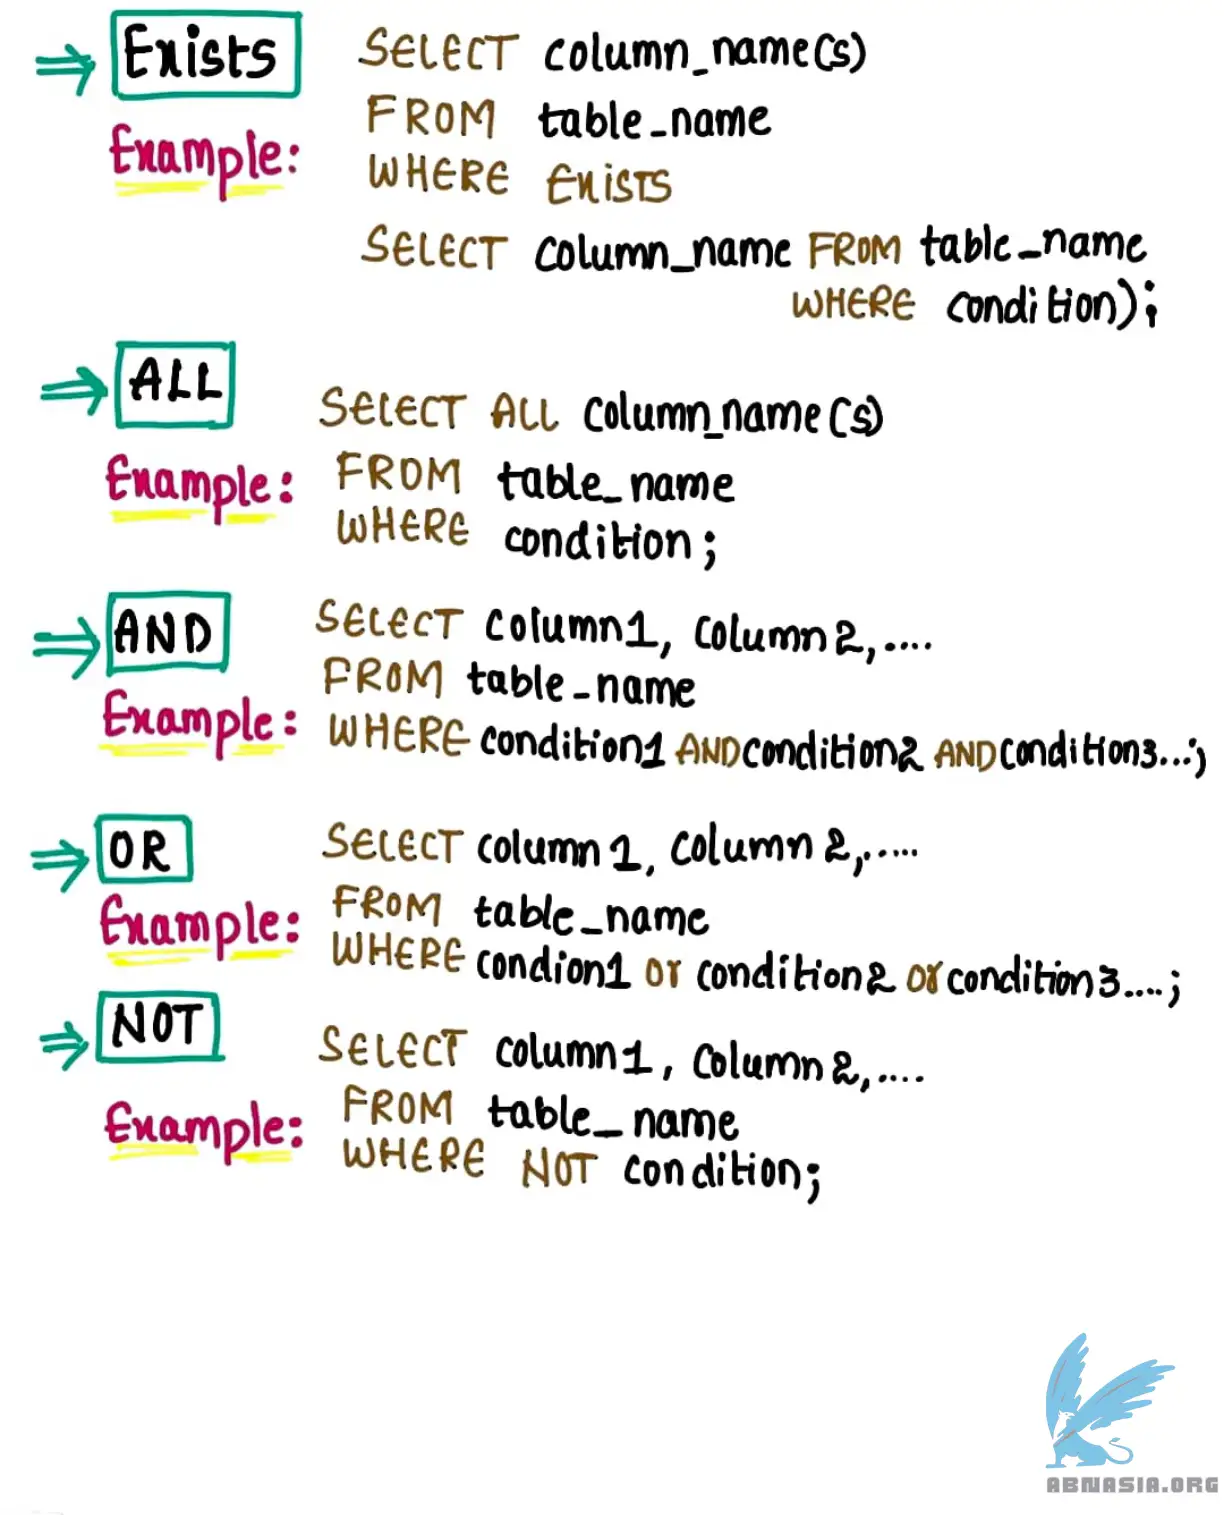 ⇒ Exists
SELECT column_name(s)
FROM table_name
Example:
WHERE EXISTS
SELECT column_name FROM table_name
WHERE condition);
⇒ ALL
SELECT ALL column_name(s)
Example: FROM table_name
WHERE condition;
⇒ AND
SELECT column1, column2,....
FROM table_name
Example:
WHERE condition1 AND condition2 AND condition3...;
⇒ OR
SELECT column1, column2,.....
Example: FROM table_name
WHERE condion1 or condition2 or condition3....;
⇒ NOT
SELECT column1, column2,....
Example: FROM table_name
WHERE NOT condition;
ABNASIA.ORG